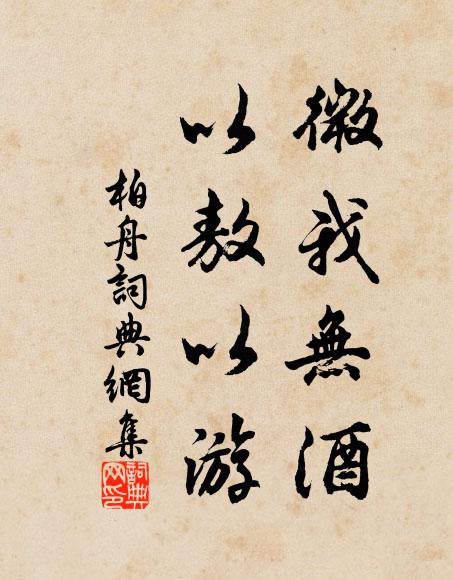 微我無酒
以敖以游
柏舟詞典網集
詞典網印